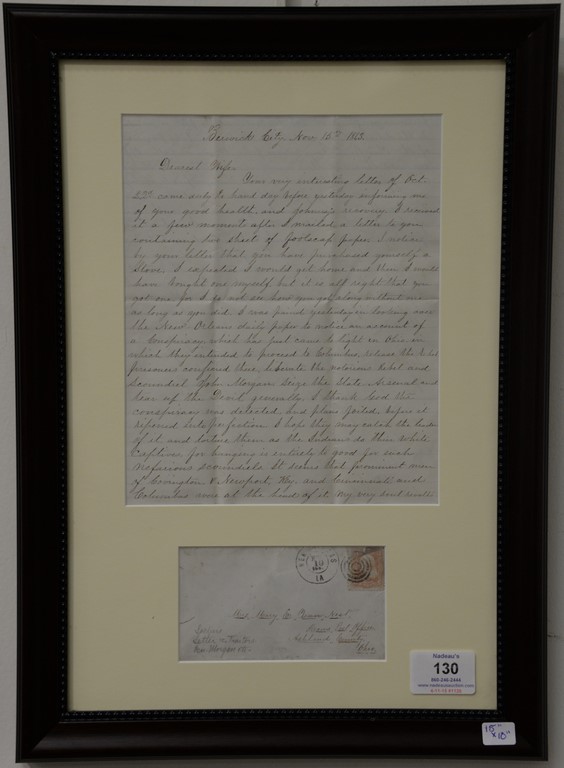 Berwick City Nov 15th 1863.
Dearest Wife,
Your very interesting letter of Oct.
22d came duly to hand day before yesterday informing me
of your good health and Johnny's recovery I received
it a few moments after I mailed a letter to you
containing two sheet of foolscap paper I notice
by your letter that you have purchased yourself a
stove. I expected I would get home and then I would
have bought one myself but it is all right that you
got one for I do not see how you got along without one
as long as you did. I was pained yesterday in looking over
the New Orleans daily paper to notice an account of
a conspiracy which has just came to light in Ohio in
which they intended to proceed to Columbus, release the rebel
prisoners confined there, liberate the notorious Rebel and
scoundrel John Morgan Seize the State Arsenal and
tear up the Devil generally. I thank God the
conspiracy was detected and plans foiled before it
ripened into perfection I hope they may catch the leaders
of it and torture them as the Indians do their white
captives for hanging is entirely to good for such
nefarious scoundrels. It seems that prominent men
of Covington & Newport, Ky. and Cincinnati and
Columbus were at the head of it my very soul
LA
Mrs. Mary E.
Ashland County
Ohio
Letter
Morgan
Nadeau's
130
860-246-2444
www.nadeausauction.com
15"
x 10"